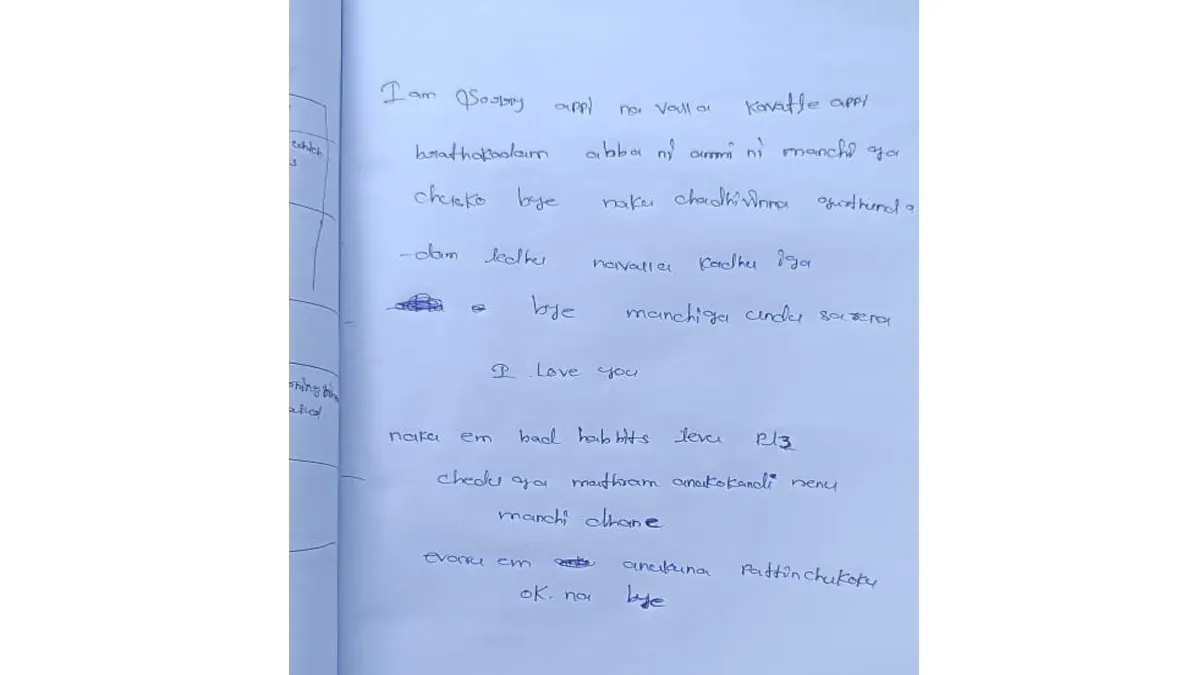 which
s
I am Sorry appl na valla kavatle appl
brathakadam abba ni ammi ni manchi ga
chusko bye naku chadhivinna gurthund a
-dam ledhu navalla kadhu iga
bye manchiga undu sarena
I Love you
naku em bad habbits levu Plz
chedu ga mathram anukokandi nenu
manchi dhane
evaru em anukuna Pattinchukoku
ok. na bye